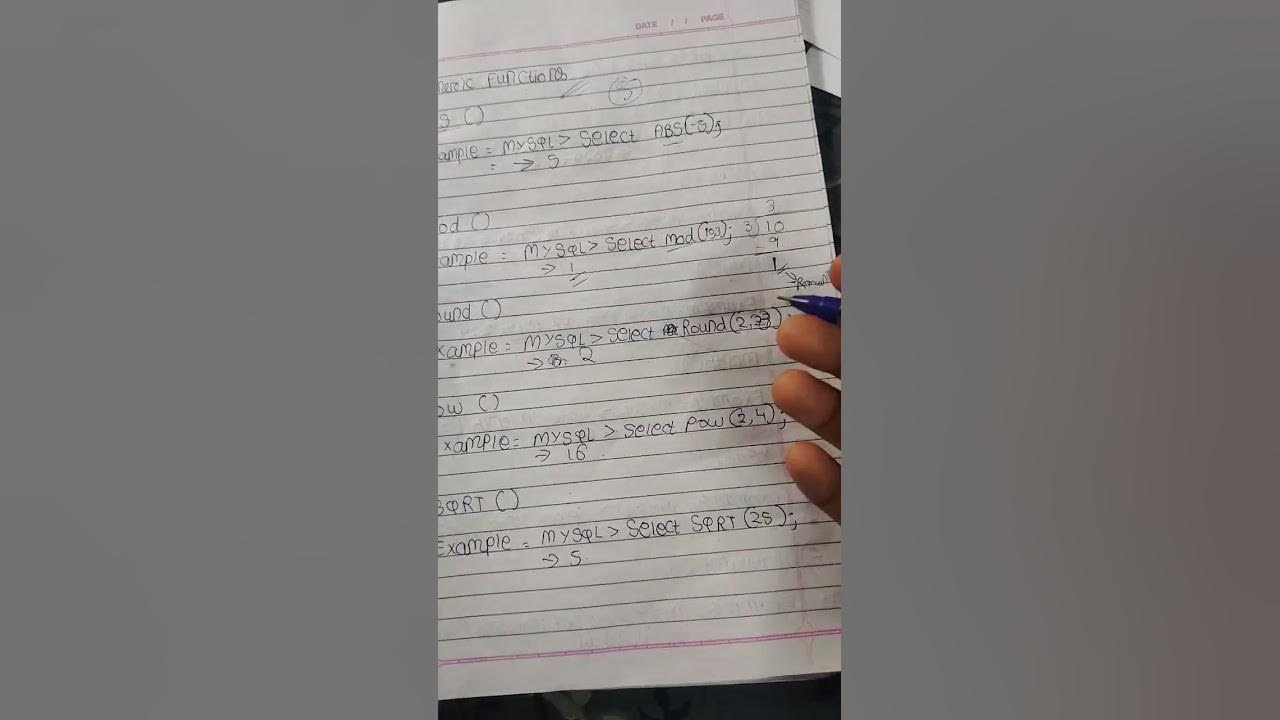 DATE / / PAGE
meric Functions
5
s ()
ample = MYSQL> Select ABS(-5);
= → 5
od ()
3
xample = MYSQL> Select mod(10,3); 3) 10
- 9
→ 1
1
ound ()
xample = MYSQL> Select Round(2.33);
→ 2
ow ()
xample = MYSQL > Select pow (2,4);
→ 16
SQRT ()
Example = MYSQL> Select SQRT (25);
→ 5